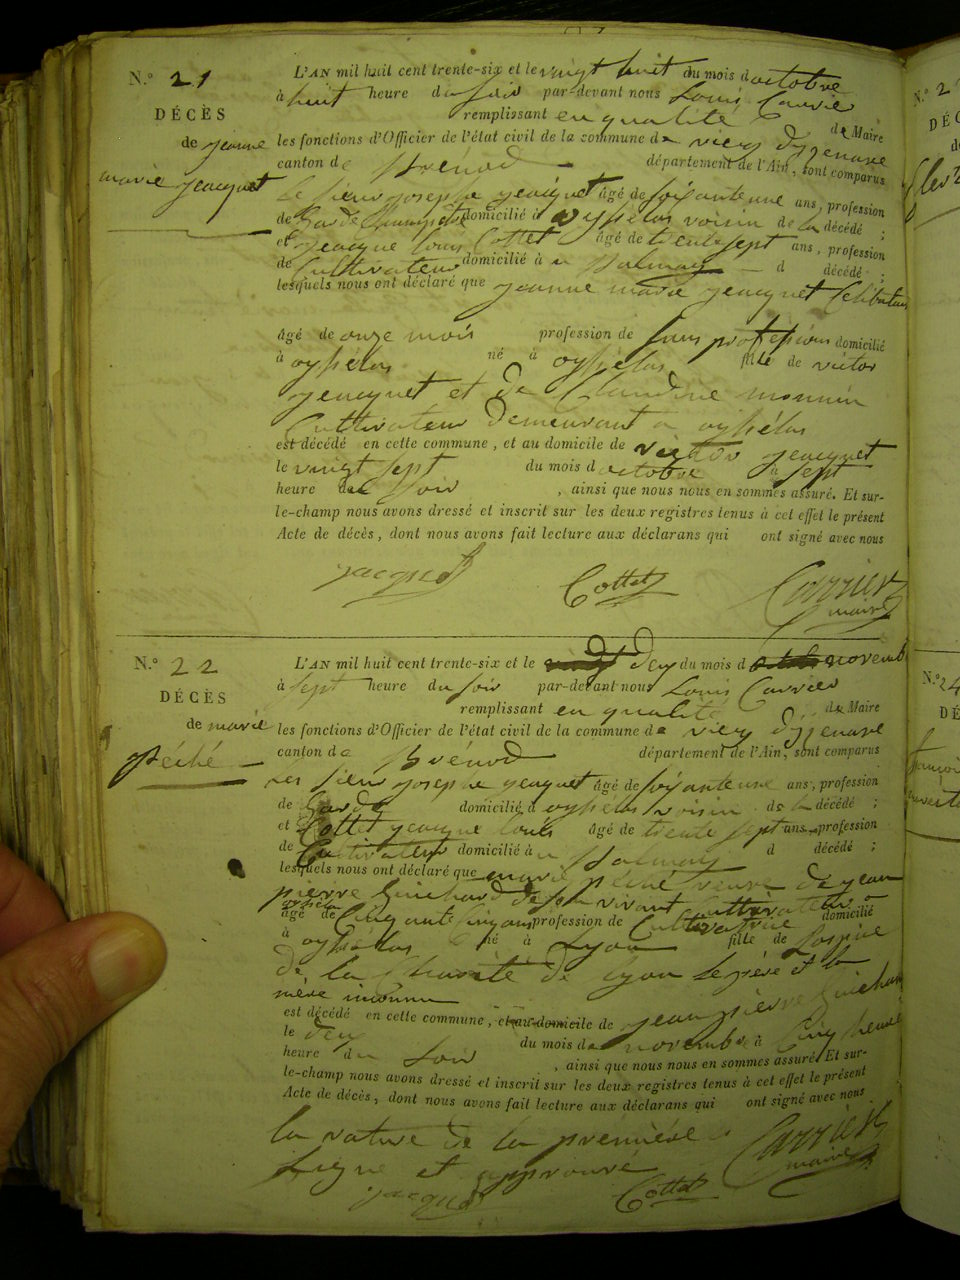 N.° 21
DÉCÈS
de jeanne
marie jeacquet
L'AN mil huit cent trente-six et le vingt huit du mois d octobre
à huit heure du soir par-devant nous Louis Carrier
remplissant en qualité de Maire
les fonctions d'Officier de l'état civil de la commune de vieu d'yzenave
canton de Brénod département de l'Ain, sont comparus
le sieur joseph jeacquet âgé de soixante une ans, profession
de Garde Champetre domicilié à oyssélas voisin de la décédé ;
et jeacque louis Cottet âgé de trente sept ans, profession
de Cultivateur domicilié à d décédé ;
lesquels nous ont déclaré que jeanne marie jeacquet Celibataire
âgé de onze mois profession de sans profession domicilié
à oyssélas né à oyssélas fille de victor
jeacquet et de Claudine monnin
Cultivateur demeurant a oyssélas
est décédé en cette commune, et au domicile de victor jeacquet
le vingt sept du mois d octobre à sept
heure du soir , ainsi que nous nous en sommes assuré. Et sur-
le-champ nous avons dressé et inscrit sur les deux registres tenus à cet effet le présent
Acte de décès, dont nous avons fait lecture aux déclarans qui ont signé avec nous
jacquet Cottet Carrier
maire
N.° 22
DÉCÈS
de marie
Péché
L'AN mil huit cent trente-six et le deux du mois d novemb
à sept heure du soir par-devant nous Louis Carrier
remplissant en qualité de Maire
les fonctions d'Officier de l'état civil de la commune de vieu d'yzenave
canton de Brénod département de l'Ain, sont comparus
sieur joseph jeacquet âgé de soixante une ans, profession
de Garde domicilié à oyssélas voisin de la décédé ;
et Cottet jeacque louis âgé de trente sept ans, profession
de Cultivateur domicilié à d décédé ;
lesquels nous ont déclaré que marie péché veuve de jean
pierre Guichard de son vivant Cultivateur a
oyssélas
âgé de Cinquante cinq ans profession de Cultivatrice domicilié
à oyssélas né à Lyon fille de l'ospice
de la Charité de lyon le père et la
mère inconnu
est décédé en cette commune, et au domicile de jean pierre Guichard
le deux du mois de novembre à Cinq heure
heure du soir , ainsi que nous nous en sommes assuré. Et sur-
le-champ nous avons dressé et inscrit sur les deux registres tenus à cet effet le présent
Acte de décès, dont nous avons fait lecture aux déclarans qui ont signé avec nous
la rature de la première
ligne et approuvé
jacquet Cottet Carrier
maire